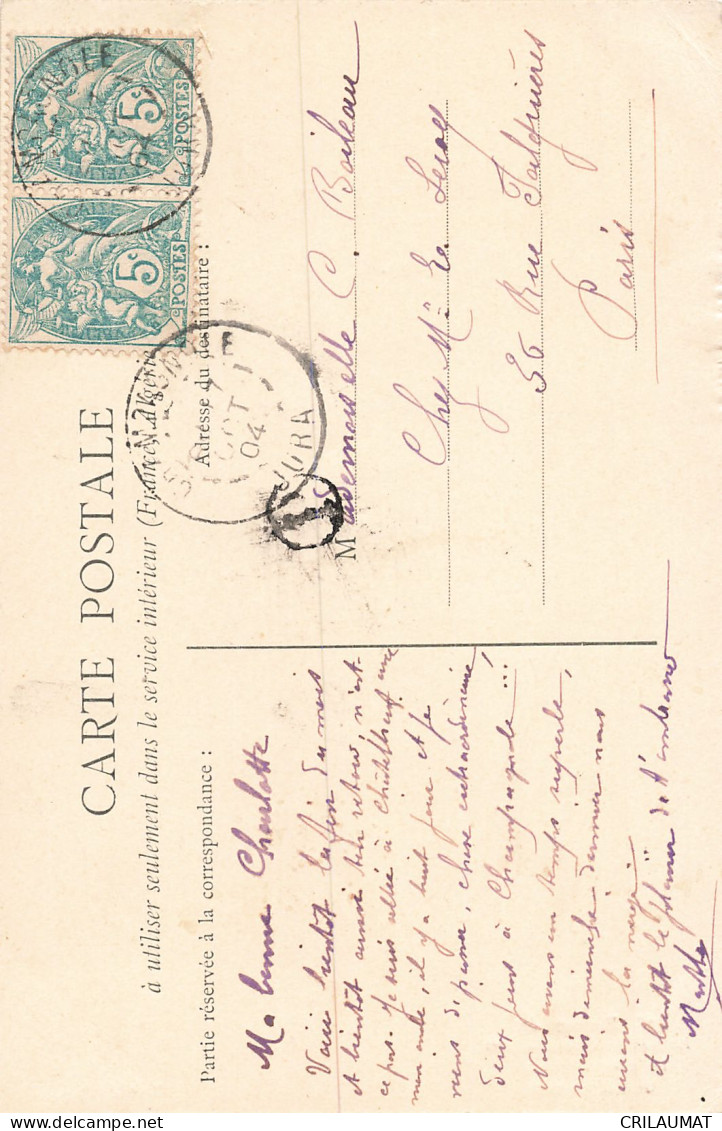 CARTE POSTALE
à utiliser seulement dans le service intérieur (France, Algérie
Partie réservée à la correspondance :
Adresse du destinataire :
Ma bonne Charlotte
Voici bientôt la fin du mois
et bientôt aussi ton retour, n'est-
ce pas. Je suis allée à Châtelneuf avec
mon oncle, il y a huit jours et je
viens de passer, chose extraordinaire
deux jours à Champagnole...!
Nous avons un temps superbe,
mais dimanche dernier nous
avions la neige
et bientôt le plaisir de t'embrasser
Marthe
Mademoiselle C. Boileau
Chez Mr Le Leroy
36 Rue Falguières
Paris
5c
POSTES
5c
POSTES
OCT
04
JURA
T
CRILAUMAT